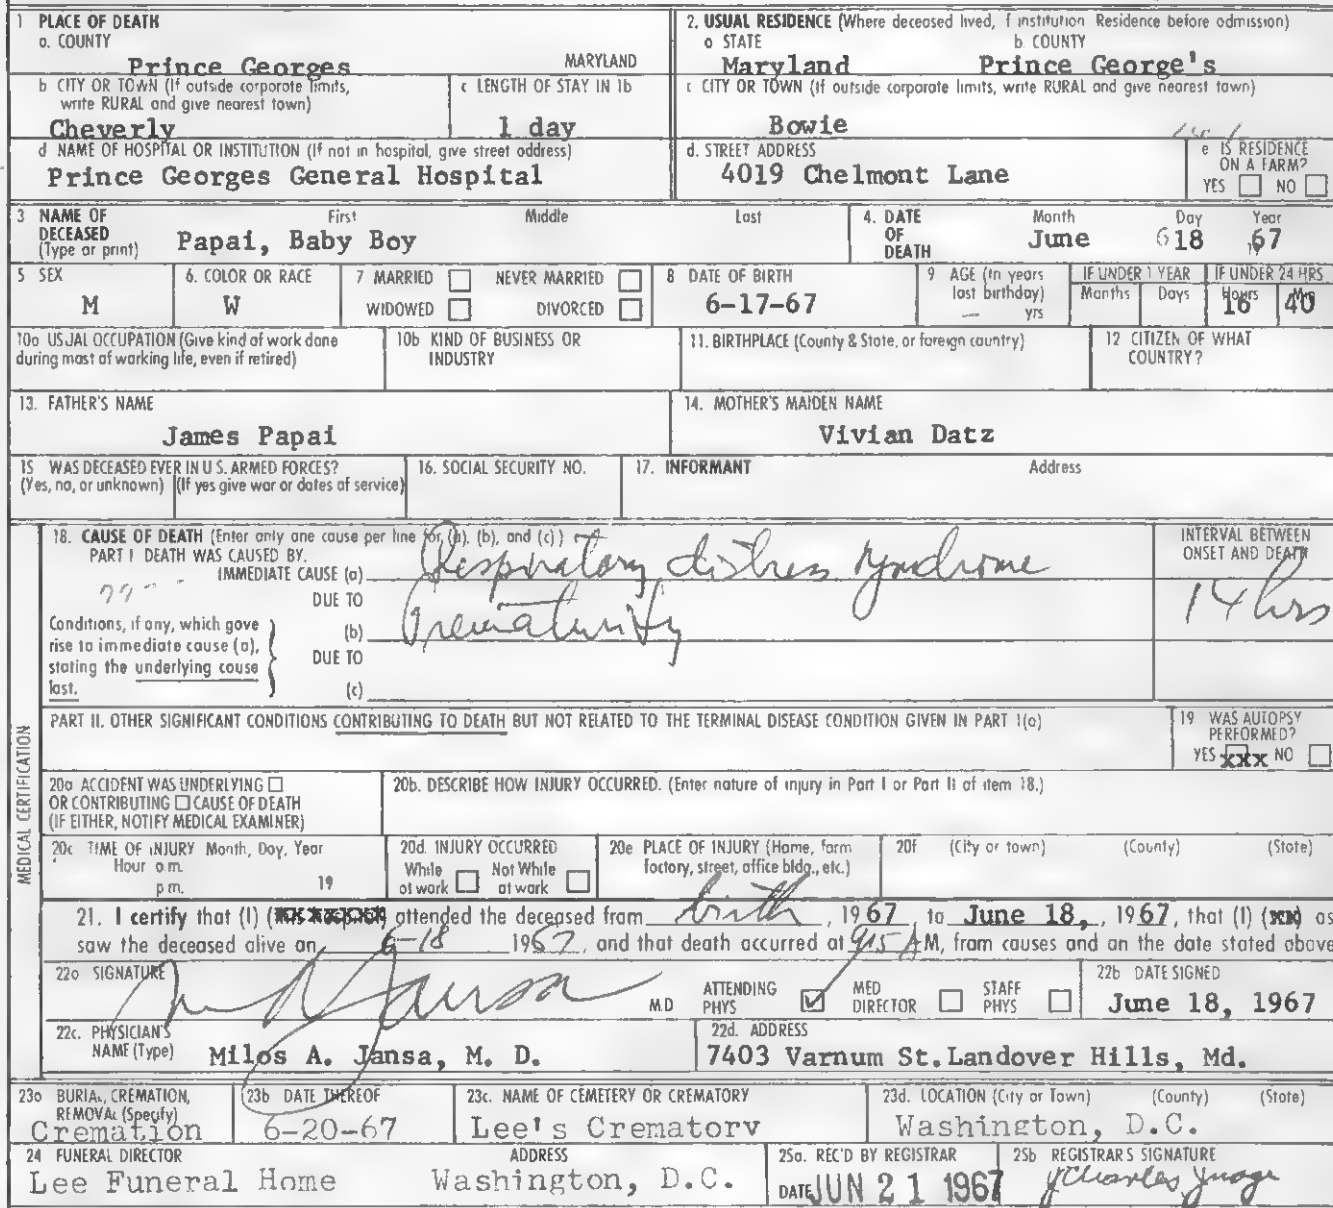 1 PLACE OF DEATH
a. COUNTY
Prince Georges MARYLAND
2. USUAL RESIDENCE (Where deceased lived, f institution Residence before admission)
a STATE b. COUNTY
Maryland Prince George's
b CITY OR TOWN (If outside corporate limits, write RURAL and give nearest town)
Cheverly
c LENGTH OF STAY IN 1b
1 day
c CITY OR TOWN (If outside corporate limits, write RURAL and give nearest town)
Bowie
d NAME OF HOSPITAL OR INSTITUTION (If not in hospital, give street address)
Prince Georges General Hospital
d. STREET ADDRESS
4019 Chelmont Lane
e IS RESIDENCE ON A FARM?
YES NO
3 NAME OF DECEASED (Type or print)
First Middle Last
Papai, Baby Boy
4. DATE OF DEATH
Month Day Year
June 6 18 1967
5 SEX
M
6. COLOR OR RACE
W
7 MARRIED NEVER MARRIED
WIDOWED DIVORCED
8 DATE OF BIRTH
6-17-67
9 AGE (In years last birthday)
yrs
IF UNDER 1 YEAR
Months Days
IF UNDER 24 HRS
Hours Min
16 40
10a USUAL OCCUPATION (Give kind of work done during most of working life, even if retired)
10b KIND OF BUSINESS OR INDUSTRY
11. BIRTHPLACE (County & State, or foreign country)
12 CITIZEN OF WHAT COUNTRY?
13. FATHER'S NAME
James Papai
14. MOTHER'S MAIDEN NAME
Vivian Datz
15 WAS DECEASED EVER IN U S. ARMED FORCES?
(Yes, no, or unknown) (If yes give war or dates of service)
16. SOCIAL SECURITY NO.
17. INFORMANT Address
MEDICAL CERTIFICATION
18. CAUSE OF DEATH (Enter only one cause per line for (a), (b), and (c))
PART I DEATH WAS CAUSED BY.
IMMEDIATE CAUSE (a) Respiratory distress syndrome
DUE TO
(b) Prematurity
DUE TO
(c)
Conditions, if any, which gave rise to immediate cause (a), stating the underlying cause last.
INTERVAL BETWEEN ONSET AND DEATH
14 hrs
PART II. OTHER SIGNIFICANT CONDITIONS CONTRIBUTING TO DEATH BUT NOT RELATED TO THE TERMINAL DISEASE CONDITION GIVEN IN PART I(a)
19 WAS AUTOPSY PERFORMED?
YES xxx NO
20a ACCIDENT WAS UNDERLYING
OR CONTRIBUTING CAUSE OF DEATH
(IF EITHER, NOTIFY MEDICAL EXAMINER)
20b. DESCRIBE HOW INJURY OCCURRED. (Enter nature of injury in Part I or Part II of item 18.)
20c TIME OF INJURY Month, Day, Year
Hour a.m.
p m. 19
20d. INJURY OCCURRED
While at work Not While at work
20e PLACE OF INJURY (Home, farm factory, street, office bldg., etc.)
20f (City or town) (County) (State)
21. I certify that (I) attended the deceased from birth, 1967, to June 18, 1967, that (I) as
saw the deceased alive on 6-18 1967, and that death occurred at 9:15 A M, from causes and on the date stated above
22a SIGNATURE
Jansa M.D
ATTENDING PHYS
MED DIRECTOR
STAFF PHYS
22b DATE SIGNED
June 18, 1967
22c. PHYSICIAN'S NAME (Type)
Milos A. Jansa, M. D.
22d. ADDRESS
7403 Varnum St.Landover Hills, Md.
23a BURIAL, CREMATION, REMOVAL (Specify)
Cremation
23b DATE THEREOF
6-20-67
23c. NAME OF CEMETERY OR CREMATORY
Lee's Crematory
23d. LOCATION (City or Town) (County) (State)
Washington, D.C.
24 FUNERAL DIRECTOR ADDRESS
Lee Funeral Home Washington, D.C.
25a. REC'D BY REGISTRAR
DATE JUN 21 1967
25b REGISTRARS SIGNATURE
Charles Judge